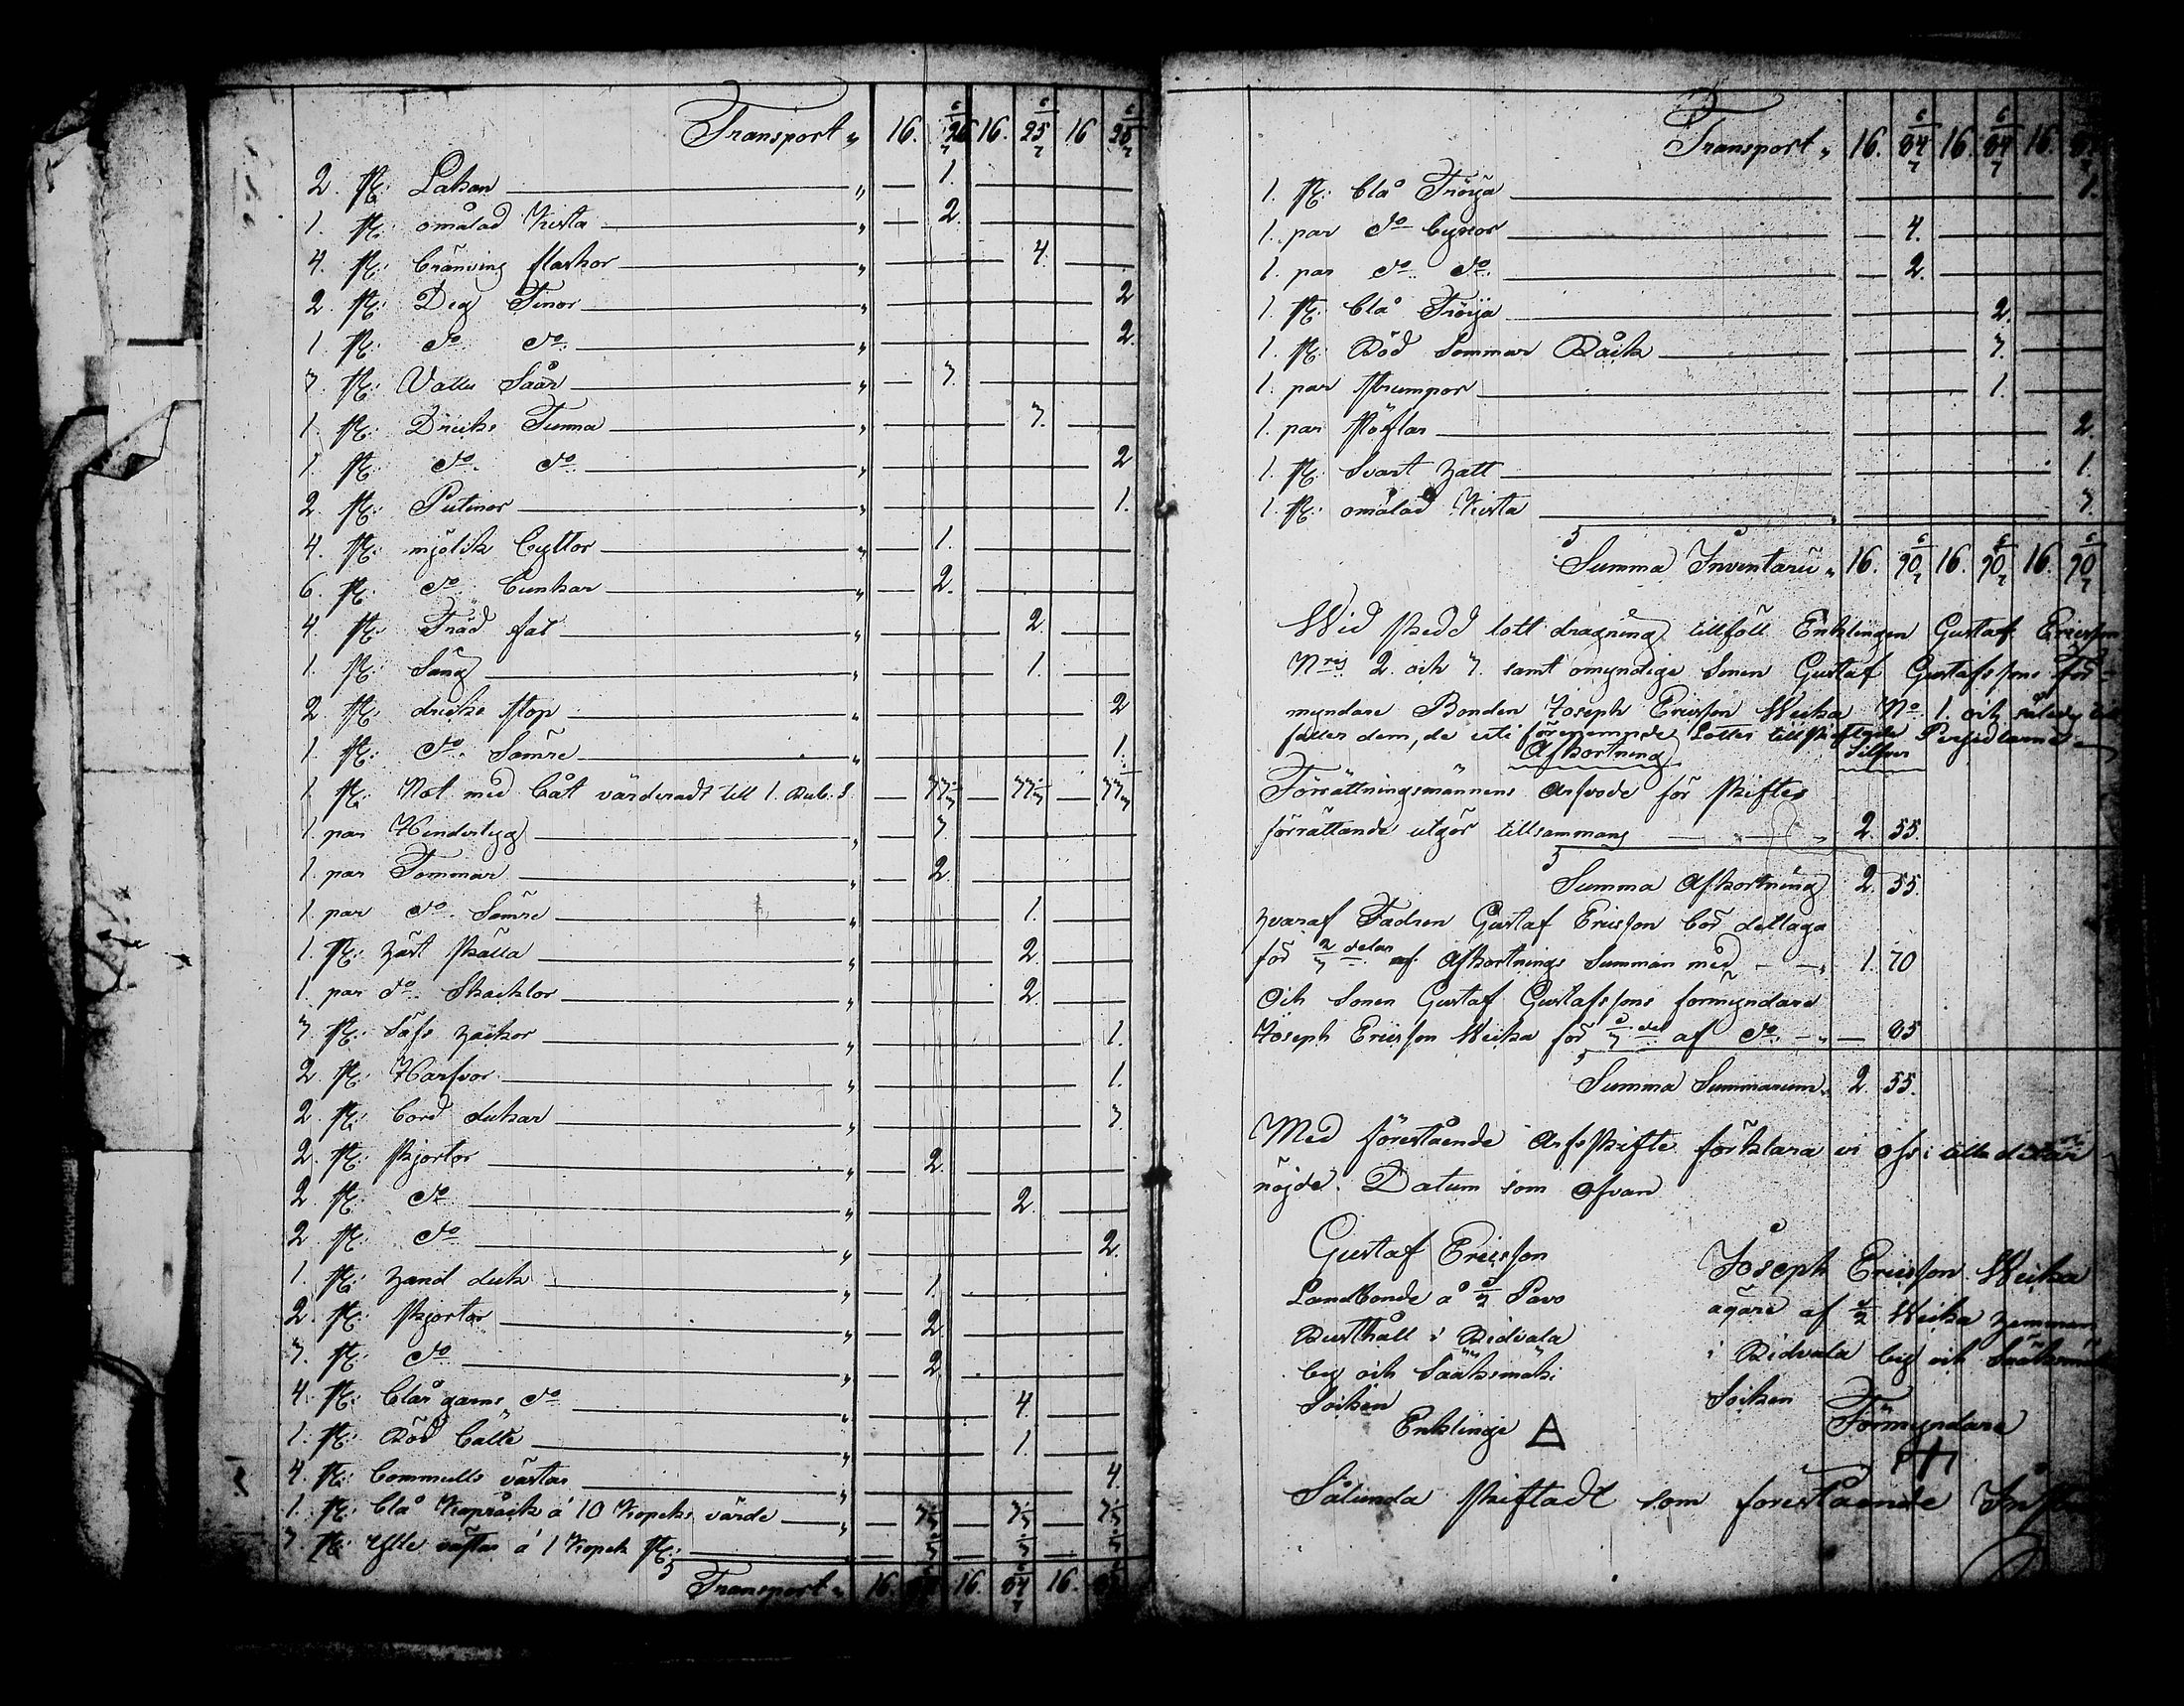 Transport „ 16. 26 16. 25 16 25
2. st: Lakan „ 1.
1. st: omålad Kista „ 2.
4. st: bränving flaskor „ 4.
2. st: Deg Tinor „ 2
1. st: do do „ 2.
3. st: Vattu Såår „ 3.
1. st: Dricks Tunna „ 3.
1. st: do do „ 2
2. st: Putinor „ 1.
4. st: mjölk byttor „ 1.
6. st: do bunkar „ 2.
4. st: Träd fat „ 2.
1. st: Säng „ 1.
2. st: dricks stop „ 2
1. st: do Sämre „ 1.
1 st: Not med båt värderadt till 1. Rub. S. 33 1/3 33 1/3 33 1/3
1. par „ 3
1. par Tömmar „ 2.
1. par do Sämre „ 1.
1. st: Häst skälla „ 2.
1. par do Skacklor „ 2.
3. st: hackor „ 1.
2. st: Harfvor „ 1.
2. st: bord dukar „ 3.
2. st: skjortor „ 2.
2 st: do „ 2.
2 st: do „ 2.
1. st: Hand duk „ 1.
2. st: skjortor „ 2.
3. st: do „ 2.
4. st: blår garns do „ 4.
1. st: Röd bälte „ 1.
4. st: bommulls västar „ 4.
1. st: blå Kapråck á 10 Kopeks värde „ 3 1/3 3 1/3 3 1/3
3. st: Ylle västar á 1 Kopek st: 1/3 1/3 1/3
Transport „ 16. 16. 64 16.
Transport „ 16. 64 16. 64 16.
1. st: blå Tröija 1.
1. par do byxor 4.
1. par do do 2.
1. st: blå Tröija 2.
1. st: Röd Sommar Råck 3.
1. par strumpor 1.
1. par stöflar 2.
1. st: Svart Hatt 1.
1. st: omålad Kista 3.
Summa Inventarii „ 16. 90 16. 90 16. 90
Wid skedd lott dragning tillföll Enklingen Gustaf Ericsson
Nris 2. och 3. samt omyndige Sonen Gustaf Gustafssons För-
myndare Bonden Joseph Ericsson Weika No 1. och således till-
faller dem, de uti förenemnde Lotter tillskiftade
Afkortning Silfver
Förrättningsmännens Arfvode för skiftes
förrättande utgör tillsammans „ 2. 55.
Summa Afkortning 2. 55.
Hvaraf Fadren Gustaf Ericsson bör deltaga
för 2/3 delar af Afkortnings Summan med „ 1. 70
Och Sonen Gustaf Gustafssons förmyndare
Joseph Ericsson Weika för 1/3 del af do „ 85
Summa Summarum „ 2. 55.
Med förestående Arfsskifte förklara vi oss i alla delar
nöjde. Datum som ofvan
Gustaf Ericsson
Landbonde å 1/2 Pavo
Rusthåll i Ridvala
by och Sääksmäki
Socken
Enklinge
Joseph Ericsson Weika
ägare af 1/2 Weika Hemman
i Ridvala by och Sääksmäki
Socken
Förmyndare
Sålunda skiftadt som förestående